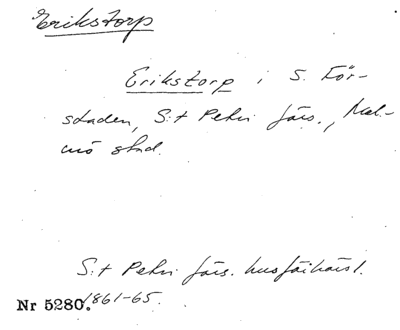 Erikstorp
Erikstorp i S. För-
staden, S:t Petri förs., Mal-
mö stad.
S:t Petri förs. husförhörsl.
1861-65.
Nr 5280.